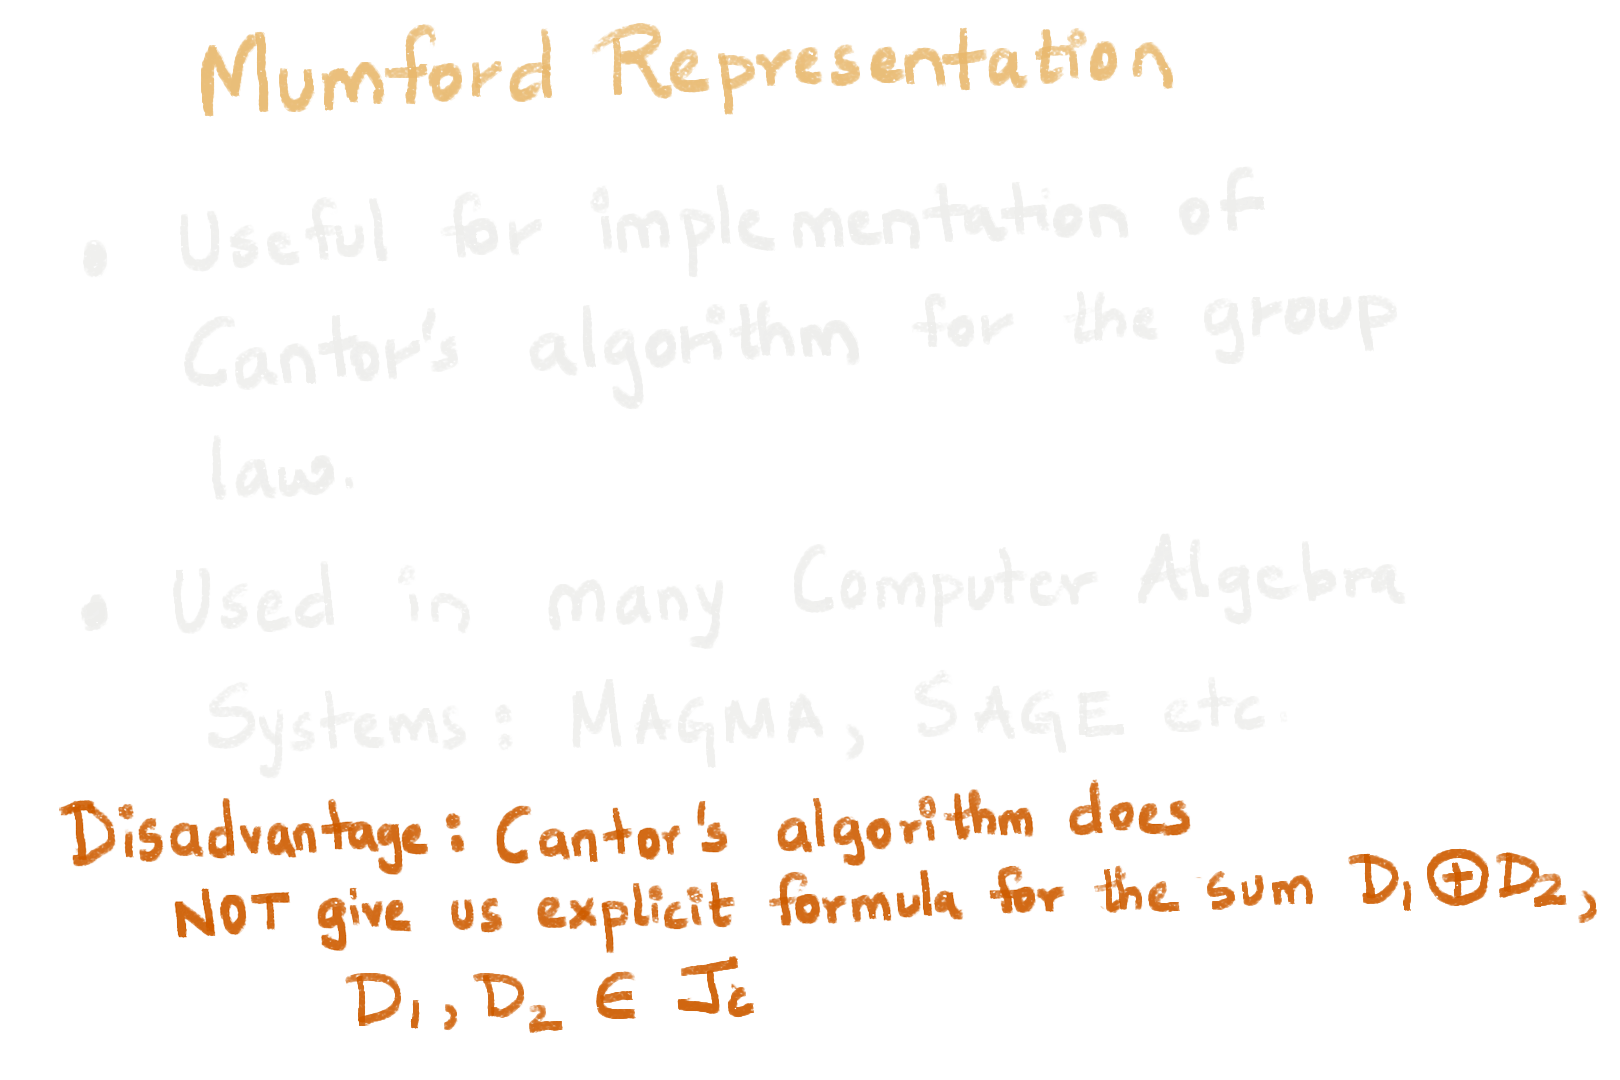 Mumford Representation
• Useful for implementation of
Cantor's algorithm for the group
law.
• Used in many Computer Algebra
Systems: MAGMA, SAGE etc.
Disadvantage: Cantor's algorithm does
NOT give us explicit formula for the sum D₁ ⊕ D₂,
D₁, D₂ ∈ J_C